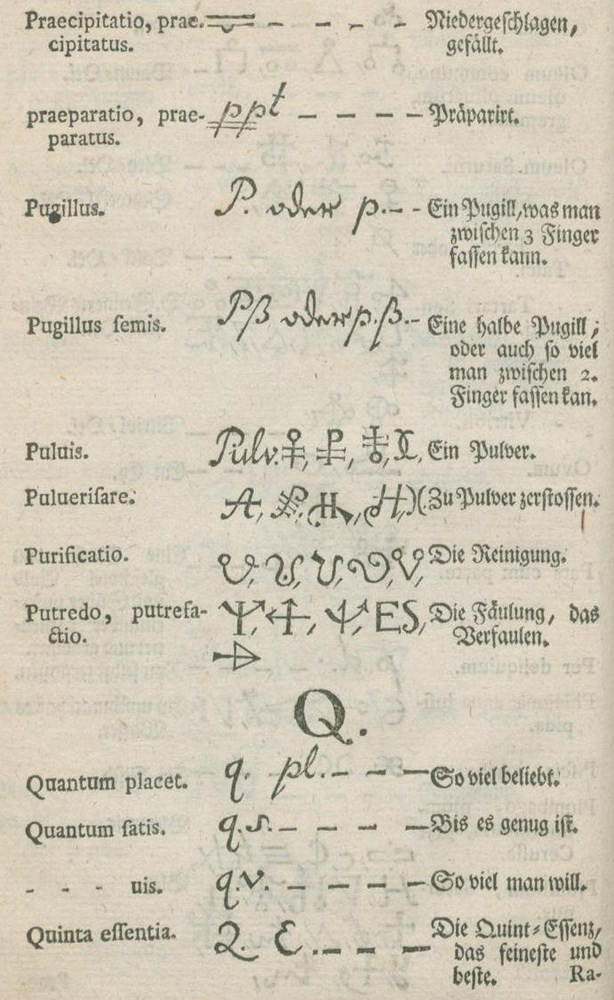 Praecipitatio, prae- – – – – Niedergeſchlagen,
cipitatus. gefällt.
praeparatio, prae- ppt – – – – Präparirt.
paratus.
Pugillus. P. oder p. – - Ein Pugill, was man
zwiſchen 3 Finger
faſſen kann.
Pugillus ſemis. Pß oder p.ß. - Eine halbe Pugill;
oder auch ſo viel
man zwiſchen 2.
Finger faſſen kan.
Puluis. Pulv. Ein Pulver.
Pulueriſare. Zu Pulver zerſtoſſen.
Purificatio. Die Reinigung.
Putredo, putrefa- ES, Die Fäulung, das
ctio. Verfaulen.
Q.
Quantum placet. q. pl. – – — So viel beliebt.
Quantum ſatis. q.s. – – – – — Bis es genug iſt.
- - - uis. q.v. – – – – — So viel man will.
Quinta eſſentia. Q. E. – – – — Die Quint-Eſſenz,
das feineſte und
beſte. Ra-